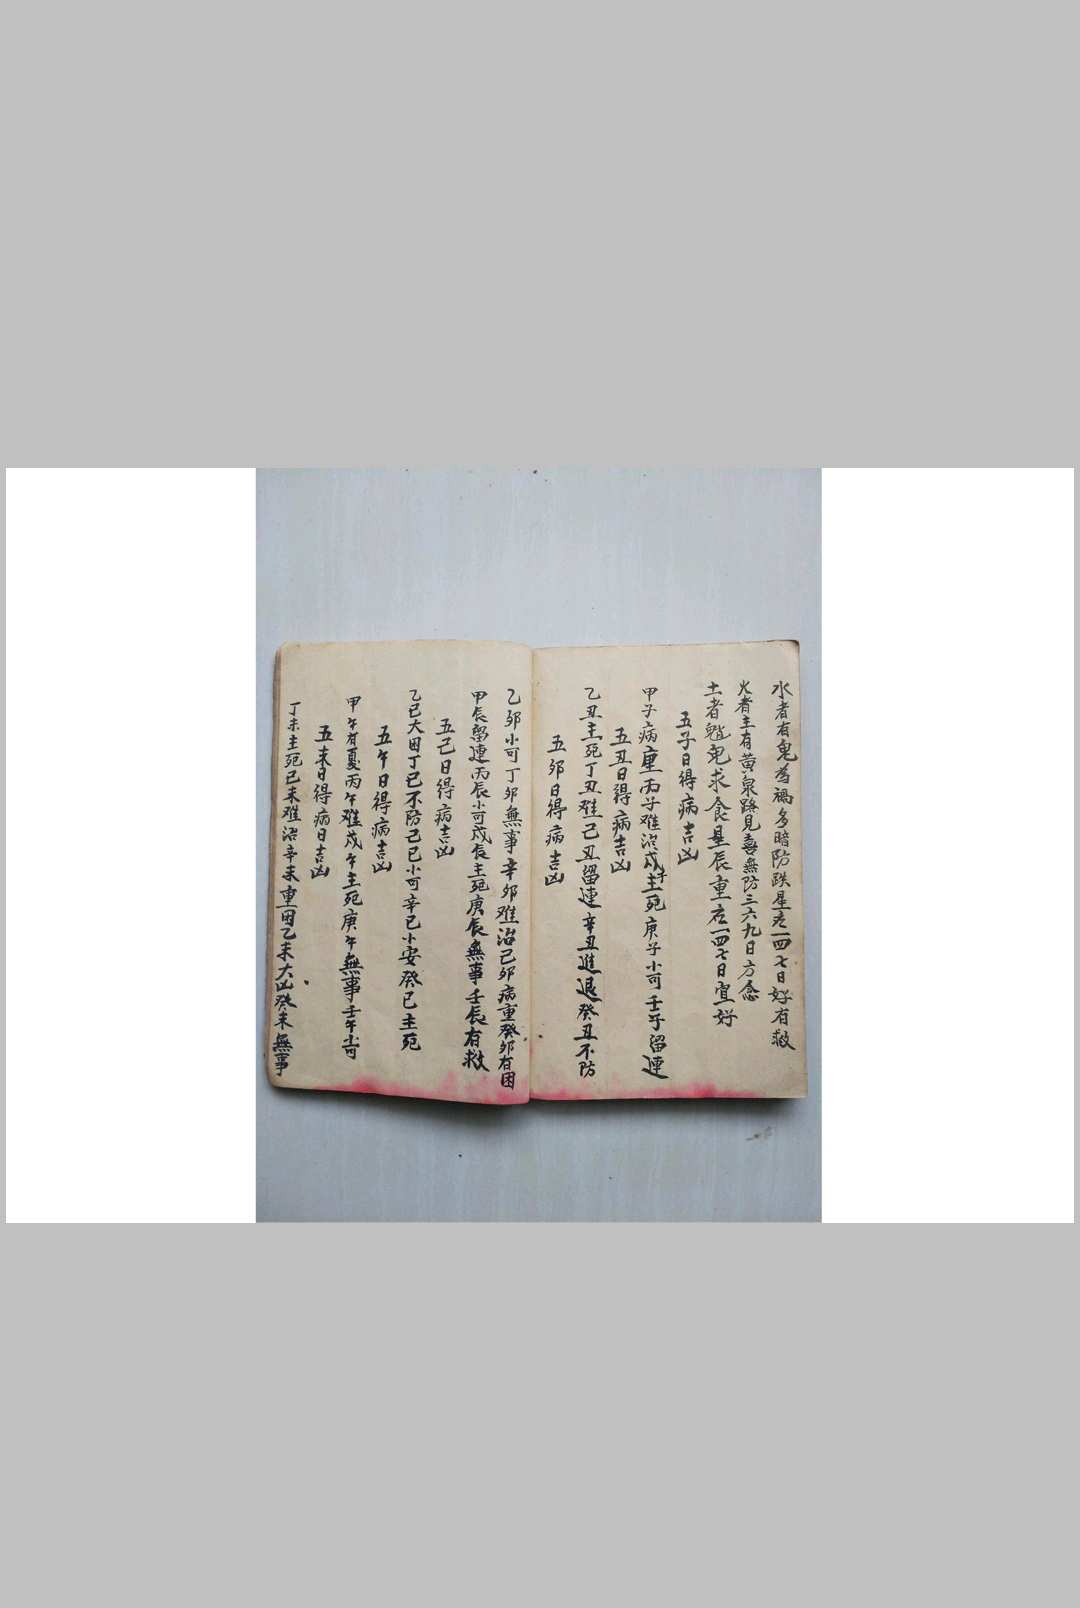 水者有鬼為禍多暗防跌星辰一四七日好有救
火者主有黄泉路見喜無防三六九日方念
土者魁鬼求食星辰重在一四七日宜好
五子日得病吉凶
甲子病重丙子难治戊子主死庚子小可壬子留連
五丑日得病吉凶
乙丑主死丁丑难己丑留連辛丑進退癸丑不防
五卯日得病吉凶
乙卯小可丁卯無事辛卯难治己卯病重癸卯有困
甲辰留連丙辰小可戊辰主死庚辰無事壬辰有救
五己日得病吉凶
乙已大困丁已不防己已小可辛已小安癸已主死
五午日得病吉凶
甲午有憂丙午难戊午主死庚午無事壬午小可
五未日得病日吉凶
丁未主死已未难治辛未重困乙未大凶癸未無事